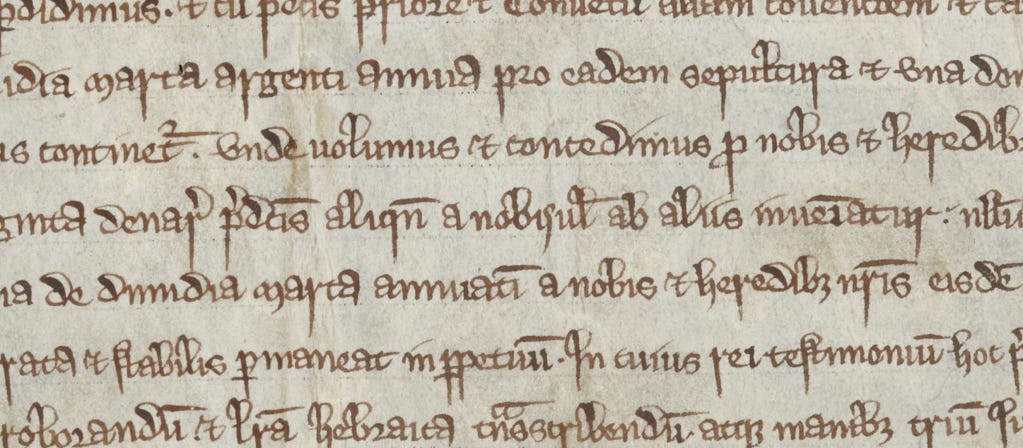 p̱didimus. ⁊ cū petis p̱riore ⁊ Conuētū
idia marca argenti annua pro eadem sepultura ⁊ vna don
us continet᷑. Vnde uolumus ⁊ concedimus p̱ nobis ⁊ heredib
ginta denar᷑ p᷑dc̄is aliqn̄ a nobis ul̄ ab aliis inuēiatur. nll̄u
ia de dimidia marca annuatī a nobis ⁊ heredibꝫ nr̄is eisdē
rata ⁊ stabilis p̱maneat in p̱petuū. In cuius rei testimoniū hoc p᷑
roborandū ⁊ lr̄a hebraica tͣnsscribendū atqꝫ manibꝫ triū Iu